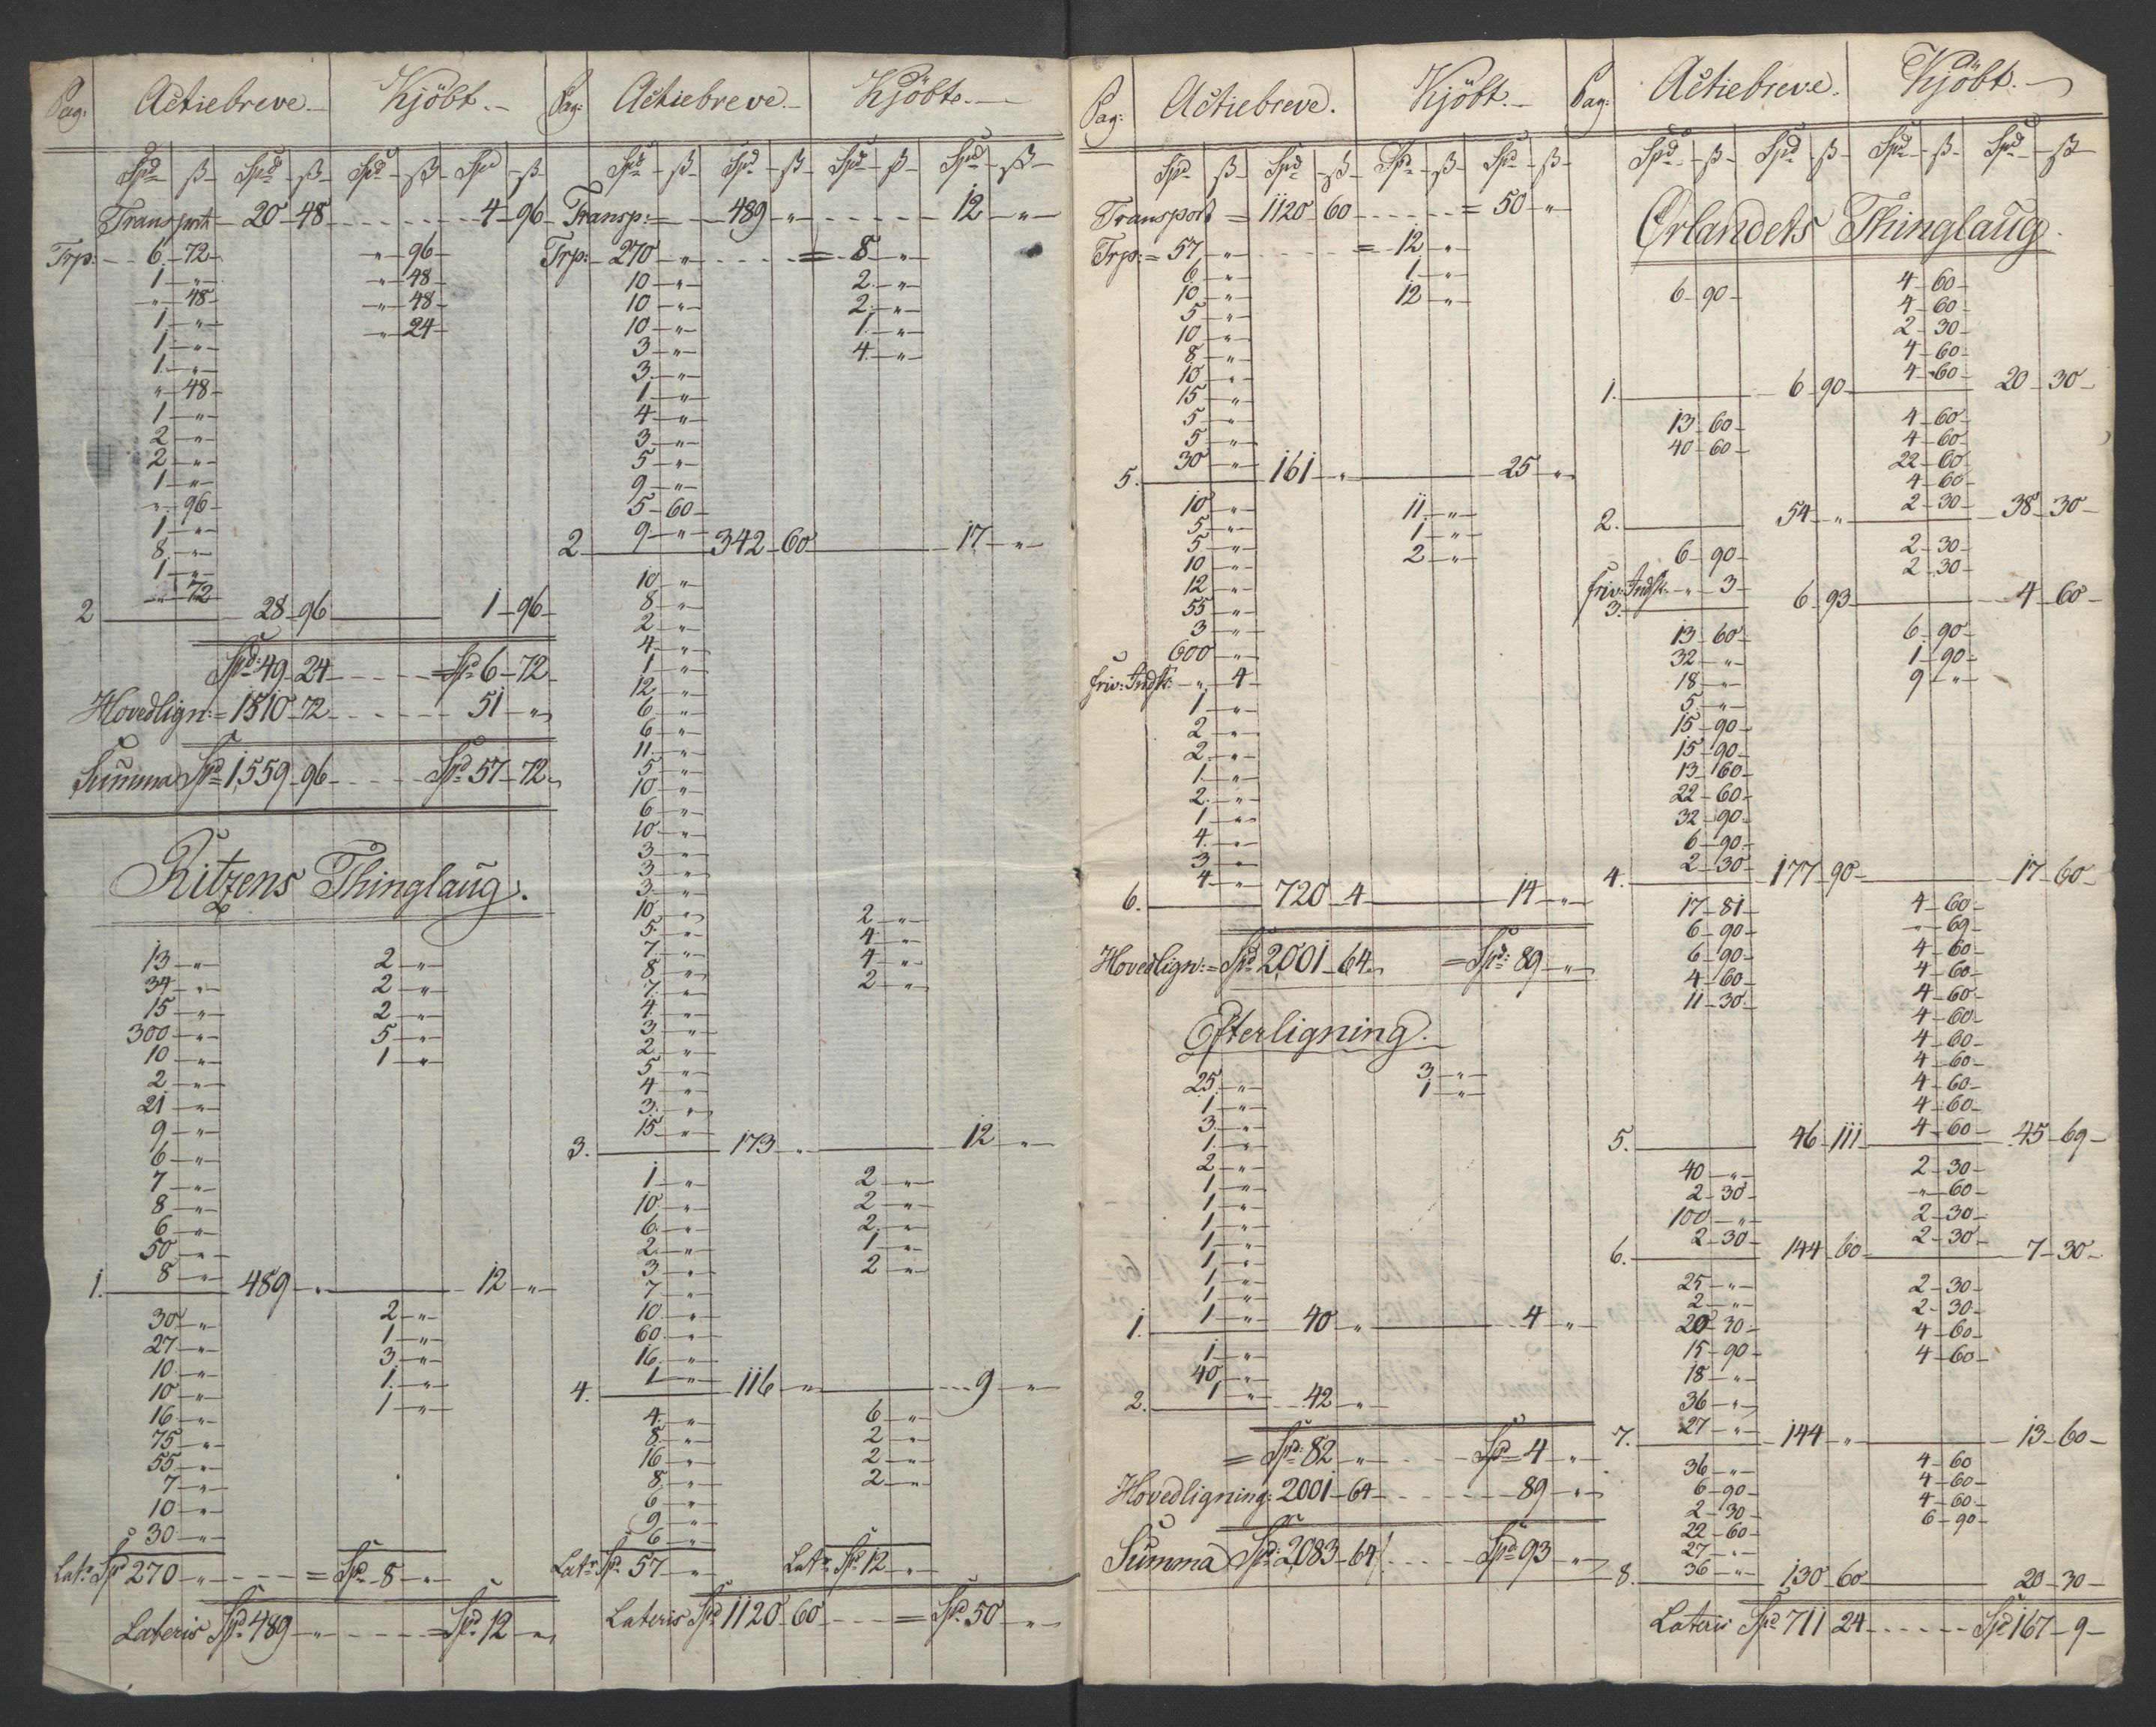 Pag: Actiebreve.- Kjöbt.-
Spd ß Spd ß Spd ß Spd ß
Transport 20 48 4 96
Trp: 6 72 " 96
1 " " 48
" 48 " 48
1 " " 24
1 "
1 "
" 48
1 "
2 "
2 "
1 "
" 96
1 "
8 "
1 "
" 72
2 28 96 1 96
Spd: 49 24 = Spd 6 72
Hovedlign: = 1510 72 51 "
Summa Spd 1559 96 Spd 57 72
Ritzens Thinglaug.
13 " 2 "
34 " 2 "
15 " 2 "
300 " 5 "
10 " 1 "
2 "
21 "
9 "
6 "
7 "
8 "
6 "
50 "
8 "
1. 489 " 12 "
30 " 2 "
27 " 1 "
10 " 3 "
10 " 1 "
16 " 1 "
75 "
55 "
7 "
10 "
30 "
Lats Spd 270 " = Spd 8 "
Lateris Spd 489 " = Spd 12 "
Pag: Actiebreve.- Kjöbt.-
Spd ß Spd ß Spd ß Spd ß
Transp: 489 " 12 "
Trp: 270 " = 8 "
10 " 2 "
10 " 2 "
10 " 1 "
3 " 4 "
3 "
1 "
4 "
3 "
5 "
9 "
5 60
9 "
2 342 60 17 "
10 "
8 "
2 "
4 "
1 "
12 "
6 "
6 "
11 "
5 "
10 "
6 "
10 "
3 "
3 "
3 "
10 " 2 "
5 " 4 "
7 " 4 "
8 " 2 "
7 "
4 "
3 "
2 "
5 "
4 "
3 "
15 "
3. 173 " 12 "
1 " 2 "
10 " 2 "
6 " 2 "
2 " 1 "
3 " 2 "
7 "
10 "
60 "
16 "
1 "
4. 116 " 9 "
4 " 6 "
8 " 2 "
16 " 2 "
8 " 2 "
6 "
9 "
6 "
Lats Spd 57 " Lats Spd 12 "
Lateris Spd 1120 60 = Spd 50 "
Pag: Actiebreve. Kjöbt.-
Spd ß Spd ß Spd ß Spd ß
Transport = 1120 60 = 50 "
Trp: = 57 " = 12 "
6 " 1 "
10 " 12 "
5 "
10 "
8 "
10 "
15 "
5 "
5 "
30 "
5. 161 " 25 "
10 " 11 "
5 " 1 "
5 " 2 "
10 "
12 "
55 "
3 "
600 "
friv: Indsk: " 4
1 "
2 "
2 "
1 "
2 "
1 "
4 "
3 "
4 "
6. 720 4 14 "
Hovedlign: = Spd 2001 64 = Spd: 89 "
Efterligning.
25 " 3 "
1 " 1 "
3 "
1 "
2 "
1 "
1 "
1 "
1 "
1 "
1 "
1 "
1 "
1. 40 " 4 "
1 "
40 "
1 "
2. 42 "
= Spd: 82 " Spd 4 "
Hovedligning: 2001 64 89 "
Summa Spd: 2083 64 Spd 93 "
Pag: Actiebreve. Kjöbt.-
Spd ß Spd ß Spd ß Spd ß
Ørlandets Thinglaug.
6 90 4 60
4 60
2 30
4 60
4 60
1. 6 90 20 30
13 60 4 60
40 60 4 60
22 60
4 60
2 30
2. 54 " 38 30
6 90 2 30
friv: Indsk: " 3 2 30
3. 6 93 4 60
13 60 6 90
32 " 1 90
18 " 9 "
5 "
15 90
15 90
13 60
22 60
32 90
6 90
2 30
4. 177 90 17 60
17 81 4 60
6 90 " 69
6 90 4 60
4 60 4 60
11 30 4 60
4 60
4 60
4 60
4 60
4 60
4 60
5. 46 111 45 69
40 " 2 30
2 30 " 60
100 " 2 30
2 30 2 30
6. 144 60 7 30
25 " 2 30
2 " 2 30
20 30 4 60
15 90 4 60
18 "
36 "
27 "
7. 144 " 13 60
36 " 4 60
6 90 4 60
2 30 4 60
22 60 6 90
27 "
36 "
8. 130 60 20 30
Lateris Spd 711 24 Spd 167 9